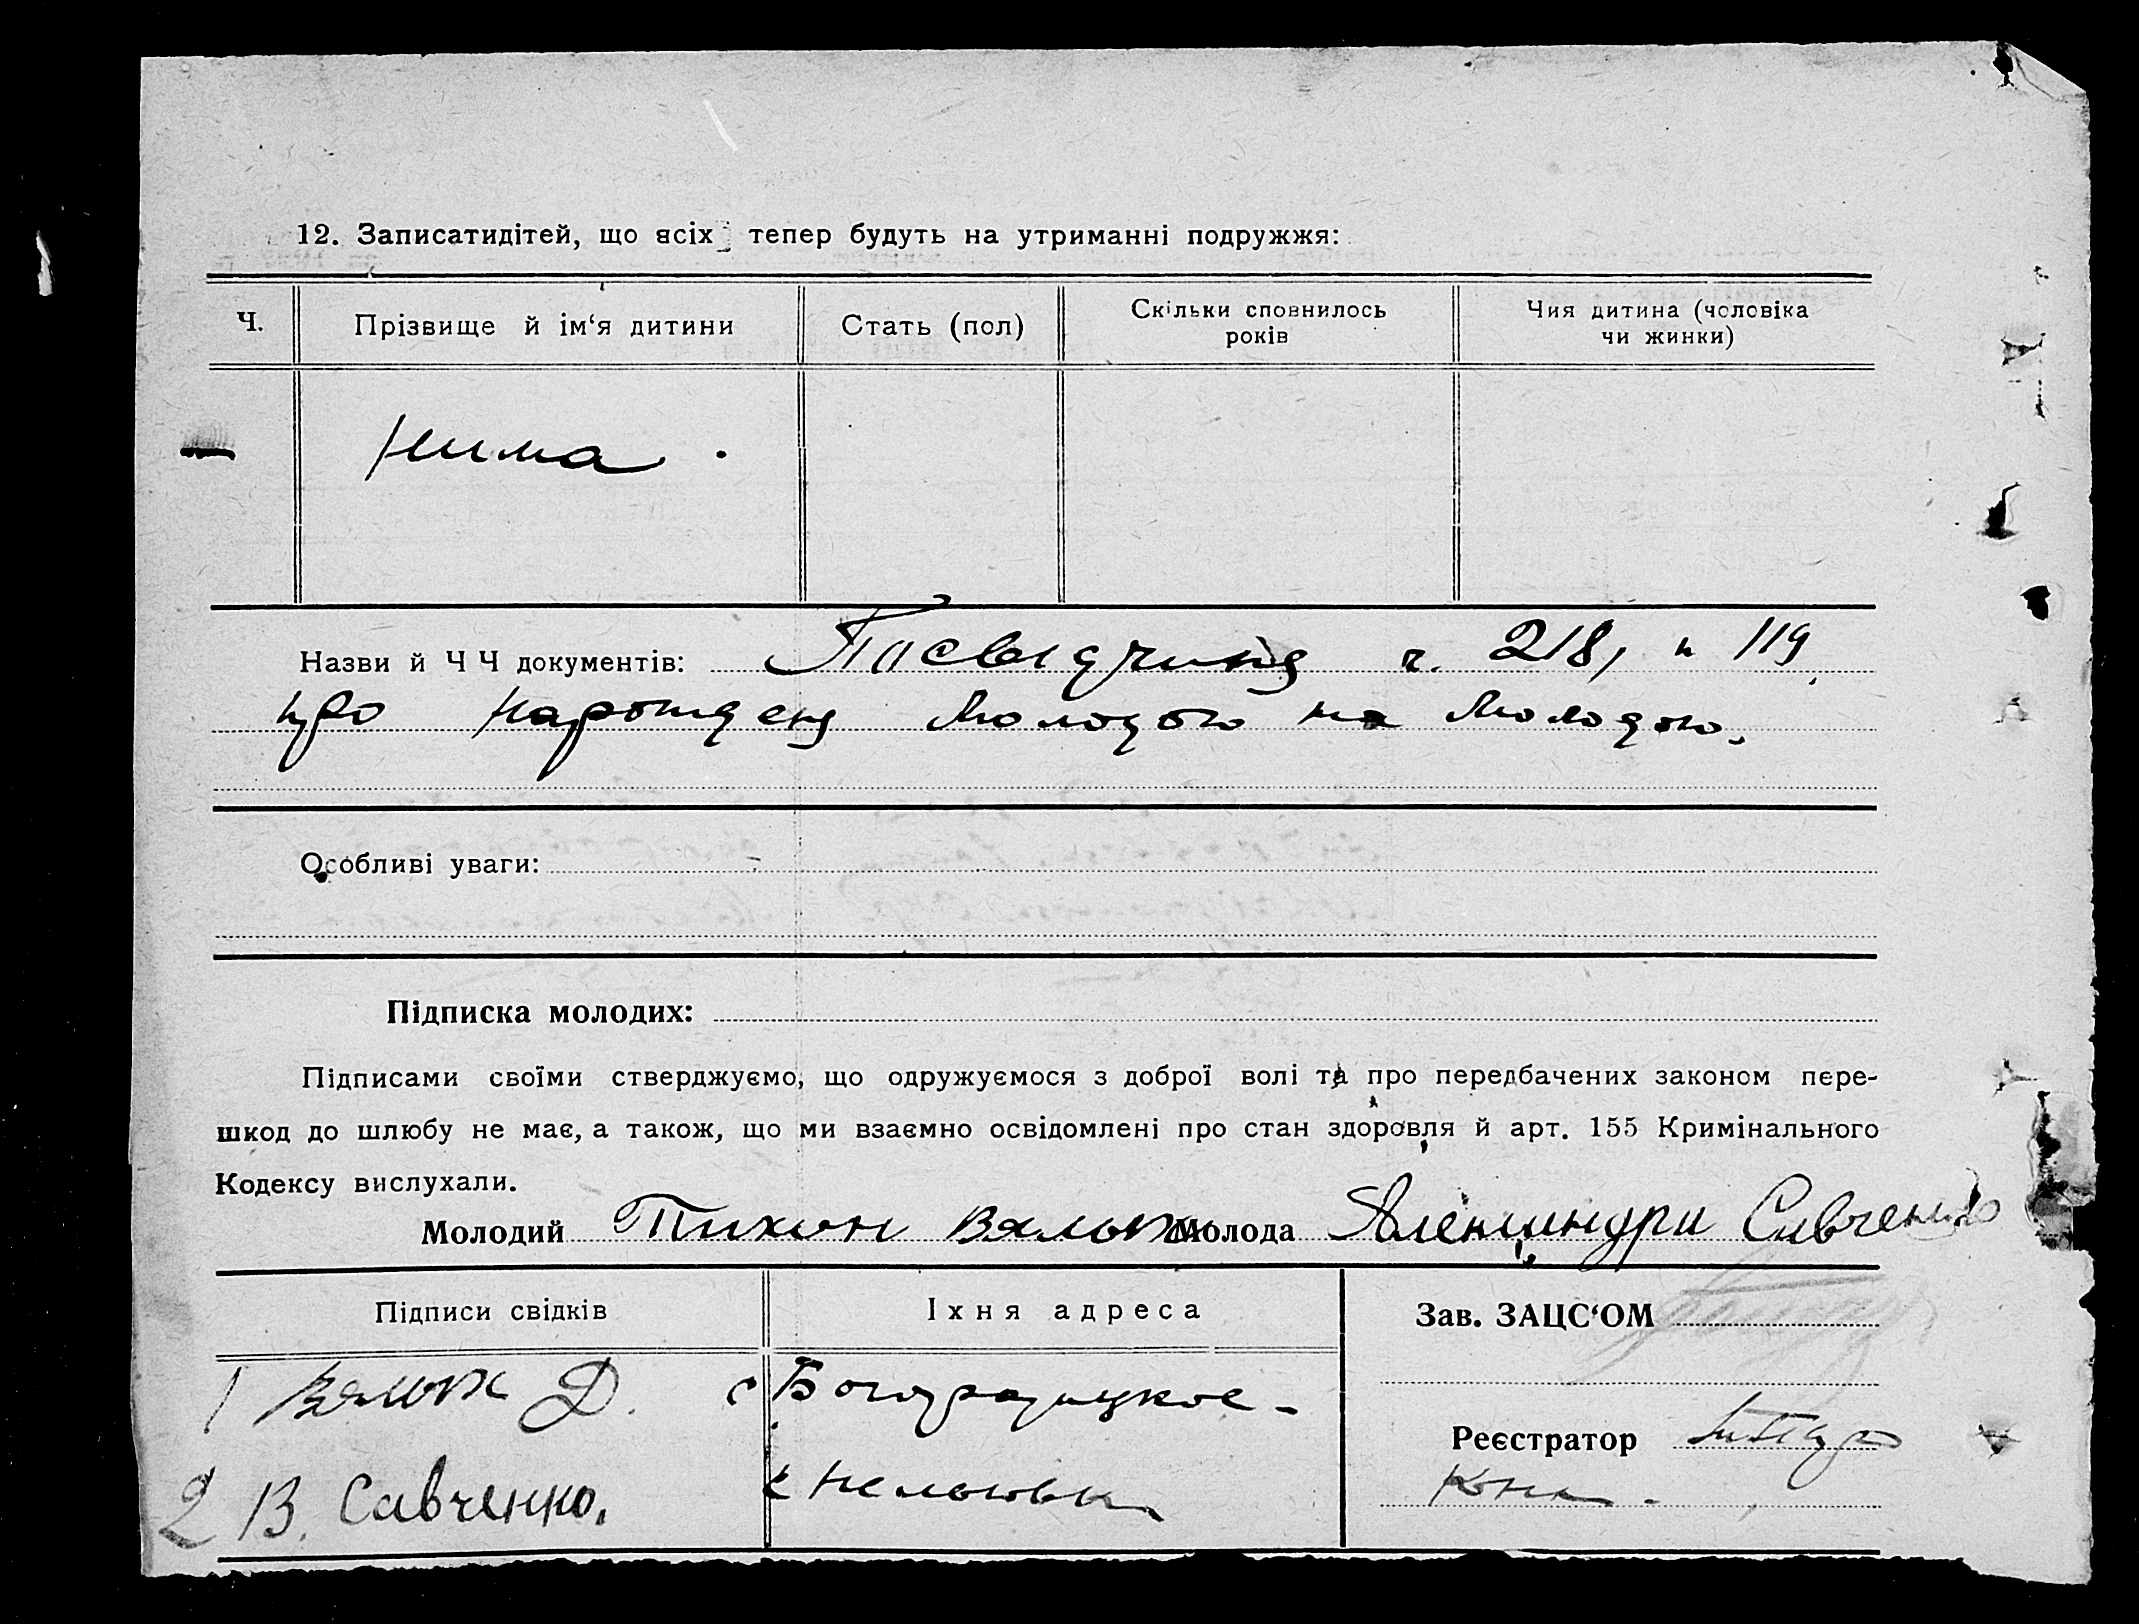 12. Записатидітей, що всіх тепер будуть на утриманні подружжя:
Ч.
Прізвище й ім‘я дитини
Стать (пол)
Скільки сповнилось
років
Чия дитина (чоловіка
чи жинки)
—
Нима.
Назви й Ч Ч документів: Посвідчиня ч. 218, и 119
про молодого на молодою.
Особливі уваги:
Підписка молодих:
Підписами своїми стверджуємо, що одружуємося з доброї волі та про передбачених законом пере-
шкод до шлюбу не має, а також, що ми взаємно освідомлені про стан здоровля й арт. 155 Кримінального
Кодексу вислухали.
Молодий Тихон Молода Савченко
Підписи свідків
Їхня адреса
Зав. ЗАЦС‘ОМ
1 Д. с Богородицкое -
Реєстратор
2 В. Савченко. с